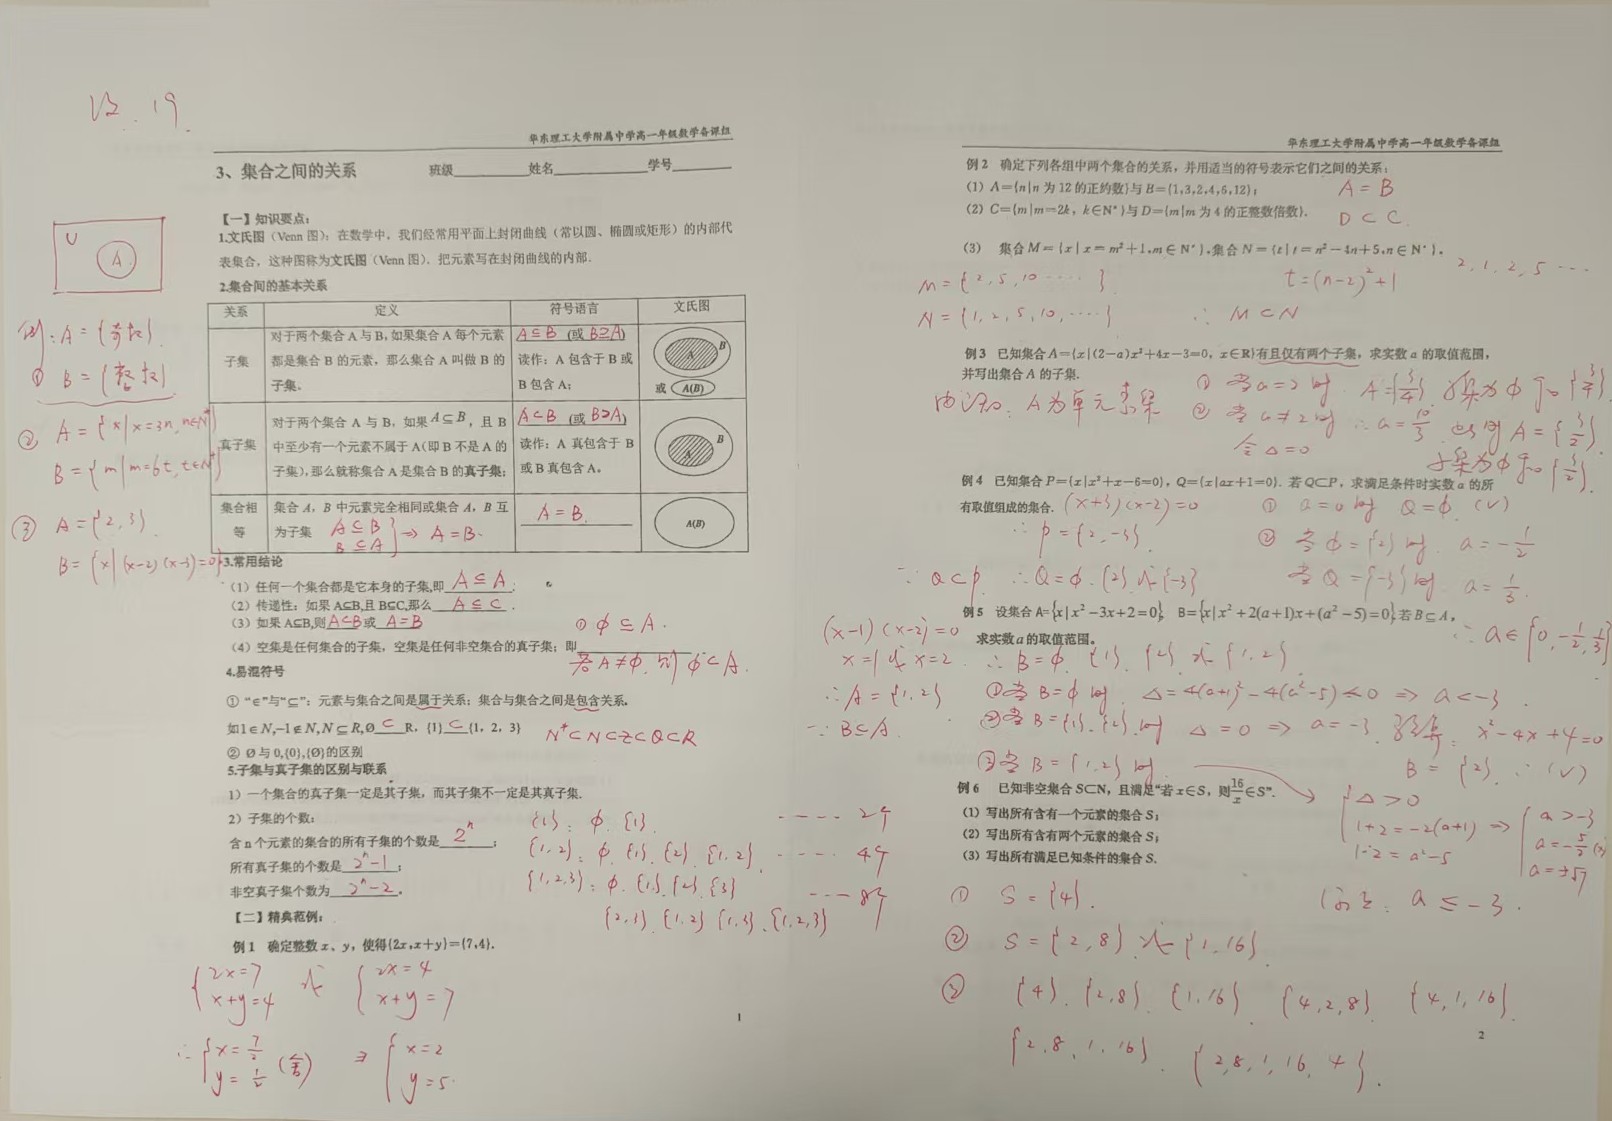 P3. 19.
华东理工大学附属中学高一年级数学备课组
3、集合之间的关系 班级______姓名________学号______
【一】知识要点：
1.文氏图（Venn 图）：在数学中，我们经常用平面上封闭曲线（常以圆、椭圆或矩形）的内部代
表集合，这种图称为文氏图（Venn 图）. 把元素写在封闭曲线的内部.
2.集合间的基本关系
U
A
例: A = {奇数}.
① B = {整数}
② A = {x|x=3n, n∈N*}
B = {m|m=6t, t∈N*}
③ A = {2,3}.
B = {x|(x-2)(x-3)=0}
关系 定义 符号语言 文氏图
子集 对于两个集合 A 与 B, 如果集合 A 每个元素
都是集合 B 的元素，那么集合 A 叫做 B 的
子集.
A⊆B (或 B⊇A)
读作：A 包含于 B 或
B 包含 A;
A B
或 A(B)
真子集 对于两个集合 A 与 B, 如果A⊆B, 且 B
中至少有一个元素不属于 A(即 B 不是 A 的
子集), 那么就称集合 A 是集合 B 的真子集;
A⊂B (或 B⊃A)
读作：A 真包含于 B
或 B 真包含 A。
A B
集合相等 集合 A，B 中元素完全相同或集合 A，B 互
为子集 A⊆B
B⊆A } ⇒ A=B.
A = B.
A(B)
3.常用结论
（1）任何一个集合都是它本身的子集,即 A⊆A ;
（2）传递性：如果 A⊆B,且 B⊆C,那么 A⊆C .
（3）如果 A⊆B,则 A⊂B 或 A=B
（4）空集是任何集合的子集，空集是任何非空集合的真子集；即
① ϕ⊆A.
若A≠ϕ. 则 ϕ⊂A.
4.易混符号
① “∈”与“⊆”：元素与集合之间是属于关系；集合与集合之间是包含关系.
如1∈N,−1∉N,N⊆R,Ø ⊂ R，{1} ⊂ {1，2，3}
N*⊂N⊂Z⊂Q⊂R
② Ø 与 0,{0},{Ø}的区别
5.子集与真子集的区别与联系
1）一个集合的真子集一定是其子集，而其子集不一定是其真子集.
2）子集的个数：
含 n 个元素的集合的所有子集的个数是 2ⁿ ;
所有真子集的个数是 2ⁿ-1 ;
非空真子集个数为 2ⁿ-2 .
{1}: ϕ. {1}. ---- 2个
{1,2}: ϕ. {1}. {2}. {1,2} ---- 4个
{1,2,3}: ϕ. {1}. {2}. {3} ---- 8个
{2,3}. {1,2} {1,3}. {1,2,3}
【二】精典范例：
例 1 确定整数 x、y，使得{2x,x+y}={7,4}.
{ 2x=7 或 { 2x=4
x+y=4 x+y=7
∴ { x=7/2 (舍) { x=2
y=1/2 y=5.
1
华东理工大学附属中学高一年级数学备课组
例 2 确定下列各组中两个集合的关系，并用适当的符号表示它们之间的关系：
(1) A={n|n 为 12 的正约数}与 B={1,3,2,4,6,12}; A = B
(2) C={m|m=2k，k∈N*}与 D={m|m 为 4 的正整数倍数}. D⊂C.
(3) 集合 M={x|x=m²+1,m∈N*}.集合 N={t|t=n²−4n+5,n∈N*}.
2, 1, 2, 5 ---
M = {2, 5, 10 ····}. t=(n-2)²+1
N = {1, 2, 5, 10, ····} ∴ M⊂N
例 3 已知集合 A={x|(2−a)x²+4x−3=0，x∈R}有且仅有两个子集，求实数 a 的取值范围，
并写出集合 A 的子集.
由识知: A为单元素集
① 当a=2时. A={3/4}. 子集为ϕ和{3/4}
② 当a≠2时 ∴a=10/3. 此时A={3/2}.
令△=0 子集为ϕ和{3/2}.
例 4 已知集合 P={x|x²+x−6=0}，Q={x|ax+1=0}. 若 Q⊂P，求满足条件时实数 a 的所
有取值组成的集合. (x+3)(x-2)=0 ① a=0时 Q=ϕ. (√)
∴ P={2,-3}. ② 当Q={2}时. a=-1/2
∵ Q⊂P. ∴Q=ϕ. {2}或{-3} 当Q={-3}时. a=1/3.
∴ a∈{0,-1/2,1/3}
例 5 设集合 A={x|x²−3x+2=0}，B={x|x²+2(a+1)x+(a²−5)=0},若 B⊆A，
求实数 a 的取值范围。
(x-1)(x-2)=0
x=1或x=2 ∴ B=ϕ. {1}. {2} 或{1,2}
∴A={1,2} ①当B=ϕ时. △=4(a+1)²-4(a²-5)<0 ⇒ a<-3.
∵ B⊆A. ②当B={1}.{2}.时 △=0 ⇒ a=-3. x²-4x+4=0
B={2}. ∴(√)
③当B={1,2}时.
{ △>0
1+2=-2(a+1)
1·2=a²-5
⇒ { a>-3
a=-5/2
a=±√7
综上: a≤-3.
例 6 已知非空集合 S⊂N，且满足“若 x∈S，则16/x∈S”.
(1) 写出所有含有一个元素的集合 S;
(2) 写出所有含有两个元素的集合 S;
(3) 写出所有满足已知条件的集合 S.
① S={4}.
② S={2,8}或{1,16}.
③ {4}. {2,8}. {1,16}. {4,2,8}. {4,1,16}.
{2,8,1,16}. {2,8,1,16,4}.
2